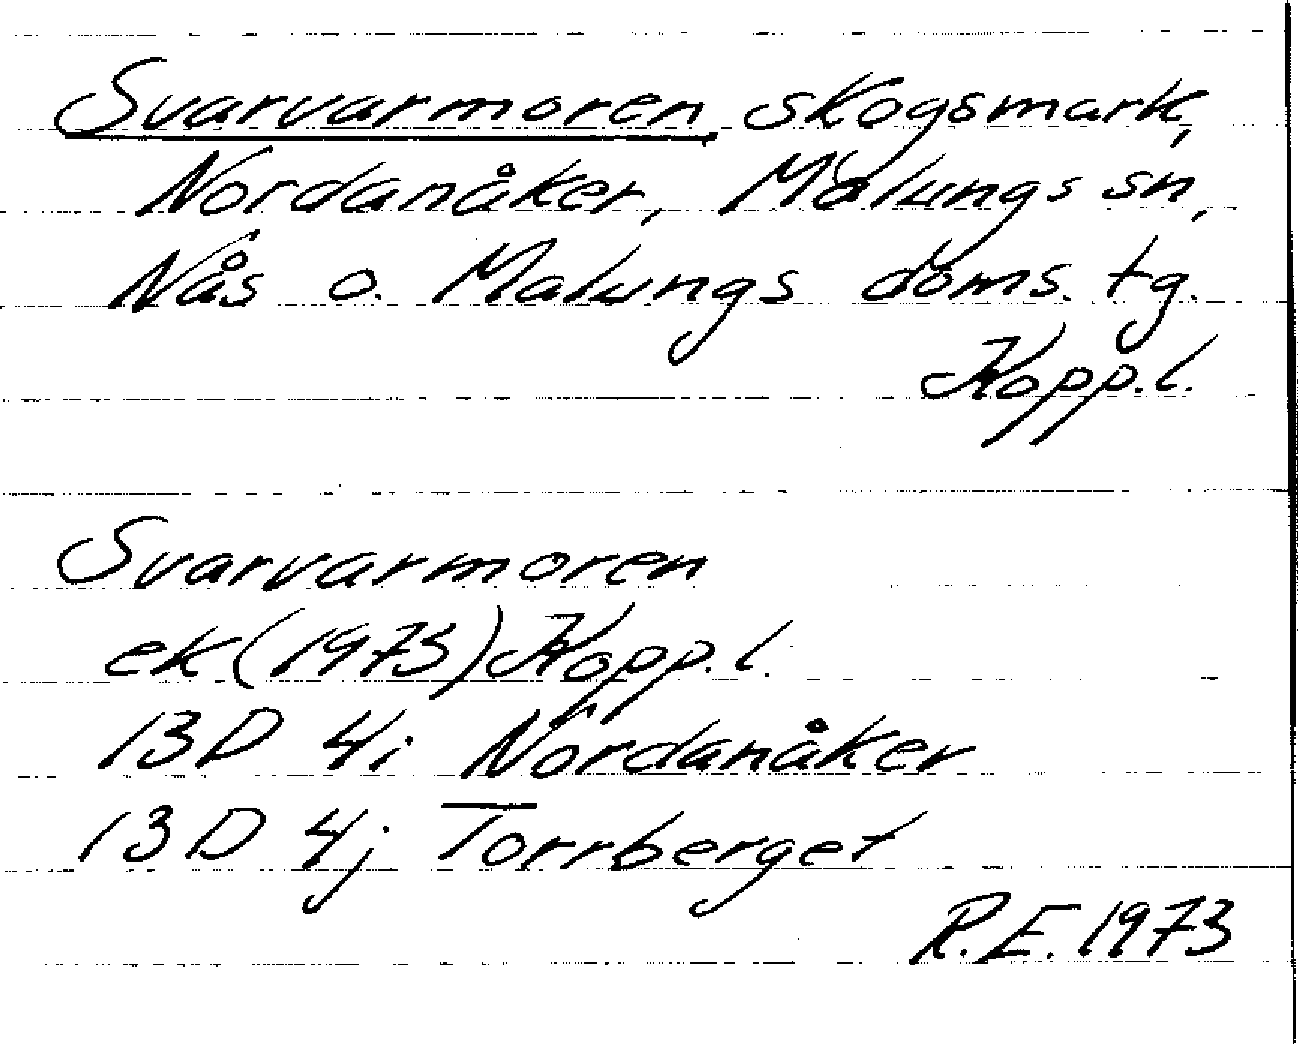 Svarvarmoren, skogsmark,
Nordanåker, Malungs sn,
Nås o. Malungs doms. tg.
Kopp.l.
Svarvarmoren
ek (1973) Kopp.l.
13D 4i Nordanåker
13D 4j Torrberget
R.E. 1973